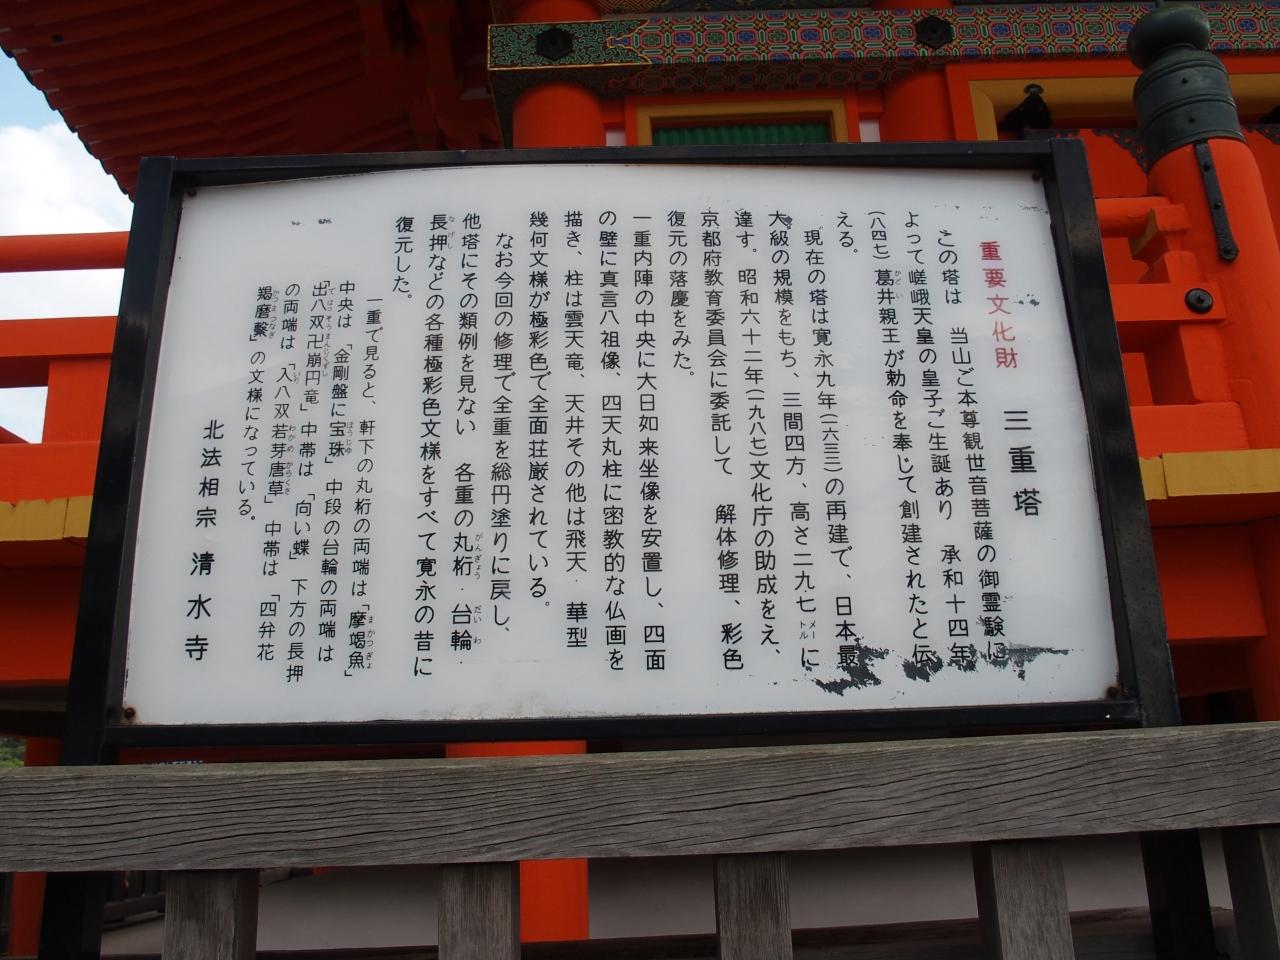 重要文化財 三重塔
この塔は 当山ご本尊観世音菩薩の御霊験に
よって嵯峨天皇の皇子ご生誕あり 承和十四年
(八四七)葛井親王が勅命を奉じて創建されたと伝
える。
現在の塔は寛永九年(一六三三)の再建で、日本最
大級の規模をもち、三間四方、高さ二九.七メートルに
達す。昭和六十二年(一九八七)文化庁の助成をえ、
京都府教育委員会に委託して 解体修理、彩色
復元の落慶をみた。
一重内陣の中央に大日如来坐像を安置し、四面
の壁に真言八祖像、四天丸柱に密教的な仏画を
描き、柱は雲天竜、天井その他は飛天・華型
幾何文様が極彩色で全面荘厳されている。
なお今回の修理で全重を総円塗りに戻し、
他塔にその類例を見ない 各重の丸桁・台輪・
長押などの各種極彩色文様をすべて寛永の昔に
復元した。
一重で見ると、軒下の丸桁の両端は「摩竭魚」
中央は「金剛盤に宝珠」中段の台輪の両端は
「出八双卍崩円竜」中帯は「向い蝶」下方の長押
の両端は「入八双若芽唐草」中帯は「四弁花
羯磨繋」の文様になっている。
北法相宗 清水寺